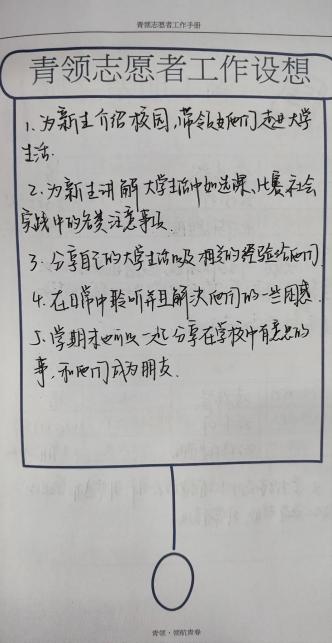 青领志愿者工作手册
青领志愿者工作设想
1. 为新生介绍校园,带领他们走进大学
生活.
2. 为新生讲解大学生活中如选课、比赛、社会
实践中的各类注意事项.
3. 分享自己的大学生活以及相关的经验给他们
4. 在日常中聆听并且解决他们的一些困惑.
5. 学期末也可以一起分享在学校中有意思的
事,和他们成为朋友.
青领·领航青春